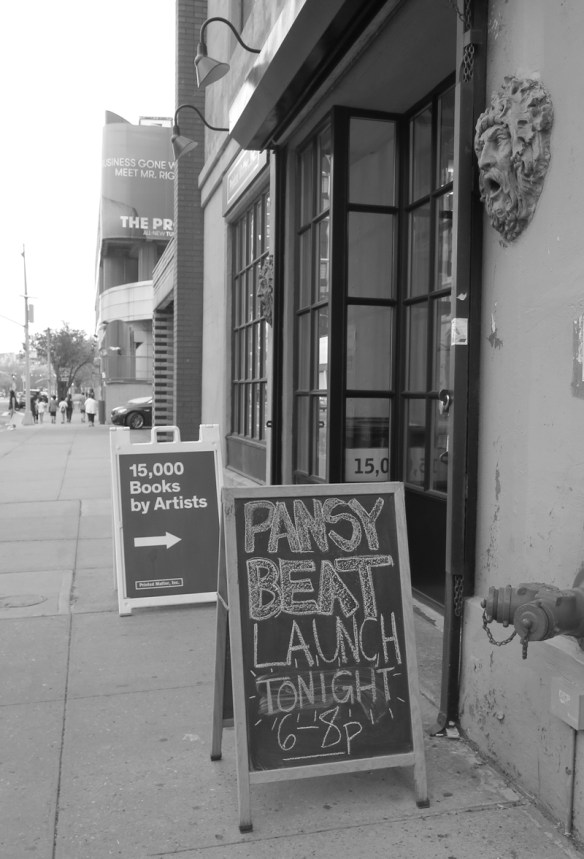 MEET MR.
THE PR
15,000
Books
by Artists
Printed Matter, Inc.
15,0
PANSY
BEAT
LAUNCH
TONIGHT
6-8p